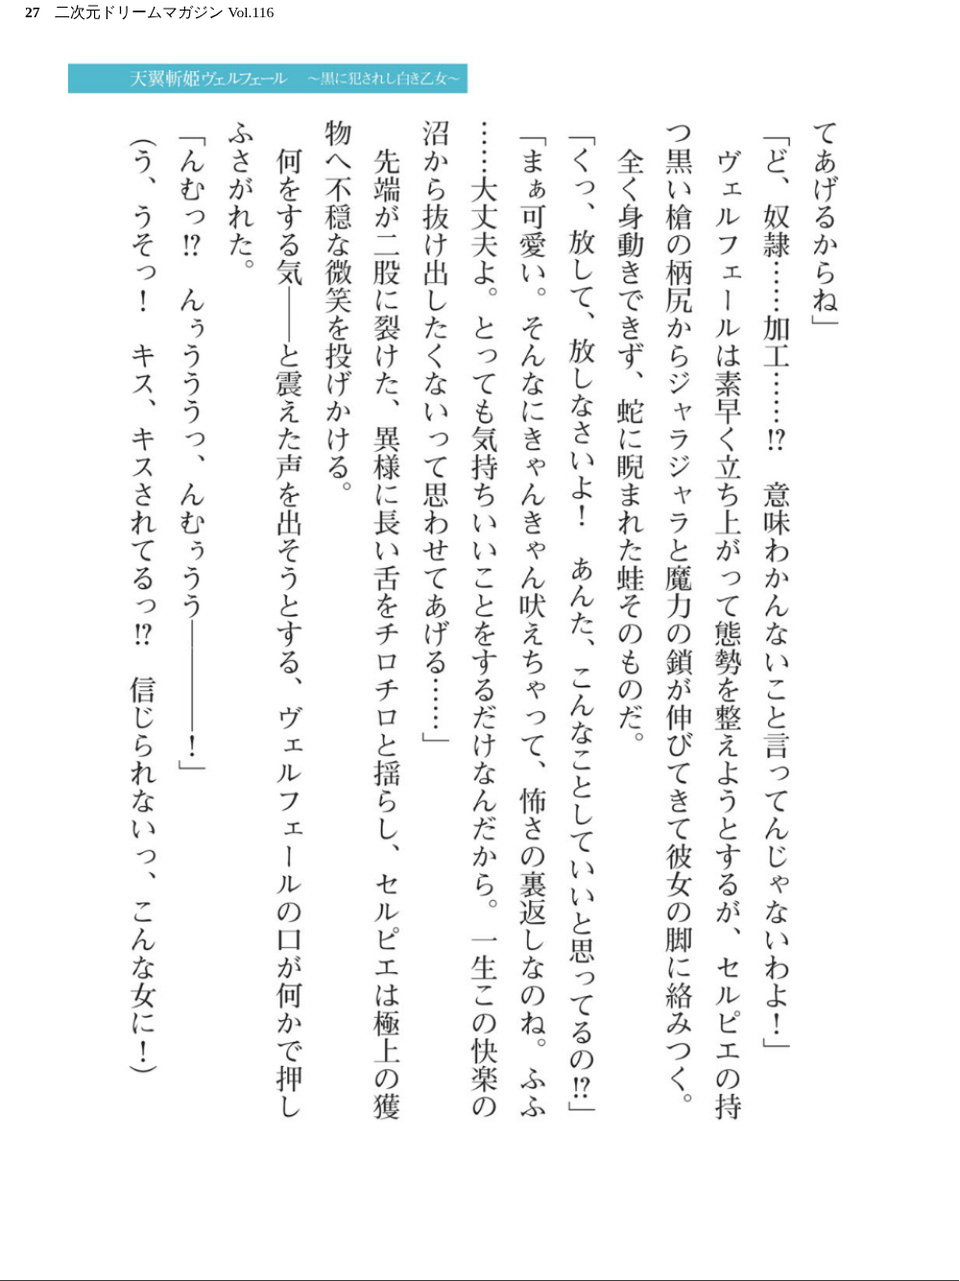 27 二次元ドリームマガジン Vol.116
天翼斬姫ヴェルフェール ～黒に犯されし白き乙女～
てあげるからね」
「ど、奴隷……加工……!?　意味わかんないこと言ってんじゃないわよ！」
　ヴェルフェールは素早く立ち上がって態勢を整えようとするが、セルピエの持
つ黒い槍の柄尻からジャラジャラと魔力の鎖が伸びてきて彼女の脚に絡みつく。
　全く身動きできず、蛇に睨まれた蛙そのものだ。
「くっ、放して、放しなさいよ！　あんた、こんなことしていいと思ってるの!?」
「まぁ可愛い。そんなにきゃんきゃん吠えちゃって、怖さの裏返しなのね。ふふ
……大丈夫よ。とっても気持ちいいことをするだけなんだから。一生この快楽の
沼から抜け出したくないって思わせてあげる……」
　先端が二股に裂けた、異様に長い舌をチロチロと揺らし、セルピエは極上の獲
物へ不穏な微笑を投げかける。
　何をする気――と震えた声を出そうとする、ヴェルフェールの口が何かで押し
ふさがれた。
「んむっ!?　んぅううっ、んむぅうう――――！」
（う、うそっ！　キス、キスされてるっ!?　信じられないっ、こんな女に！）